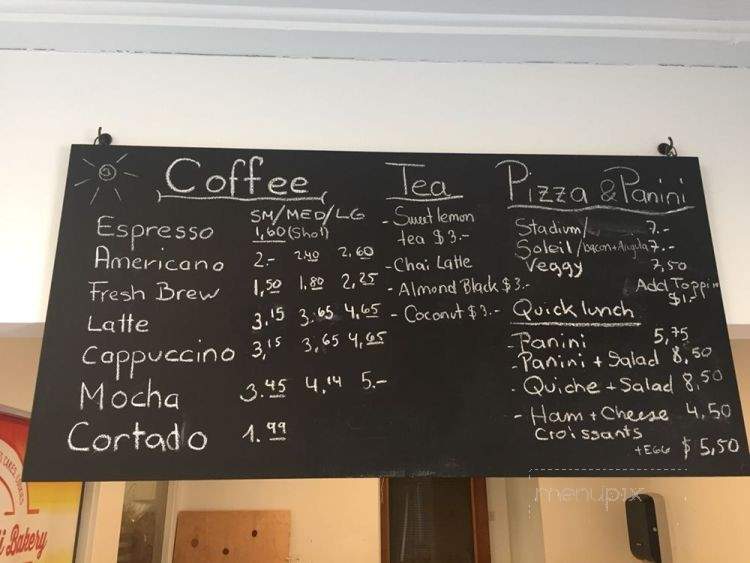 Coffee
SM/MED/LG
Espresso 1,60 (Shot)
Americano 2.- 2.40 2,60
Fresh Brew 1,50 1.80 2,25
Latte 3.15 3.65 4,65
Cappuccino 3,15 3,65 4,65
Mocha 3.45 4,14 5.-
Cortado 1.99
Tea
- Sweet lemon
tea $3.-
- Chai Latte
- Almond Black $3.-
- Coconut $3.-
Pizza & Panini
Stadium/ 7.-
Soleil/bacon+Arugula 7.-
Veggy 7,50
Add Toppin
$1.-
Quick lunch
- Panini 5,75
- Panini + Salad 8,50
- Quiche + Salad 8,50
- Ham + Cheese 4,50
Croissants
+EGG $5,50
menupix
CAKES, COOKIES
i Bakery